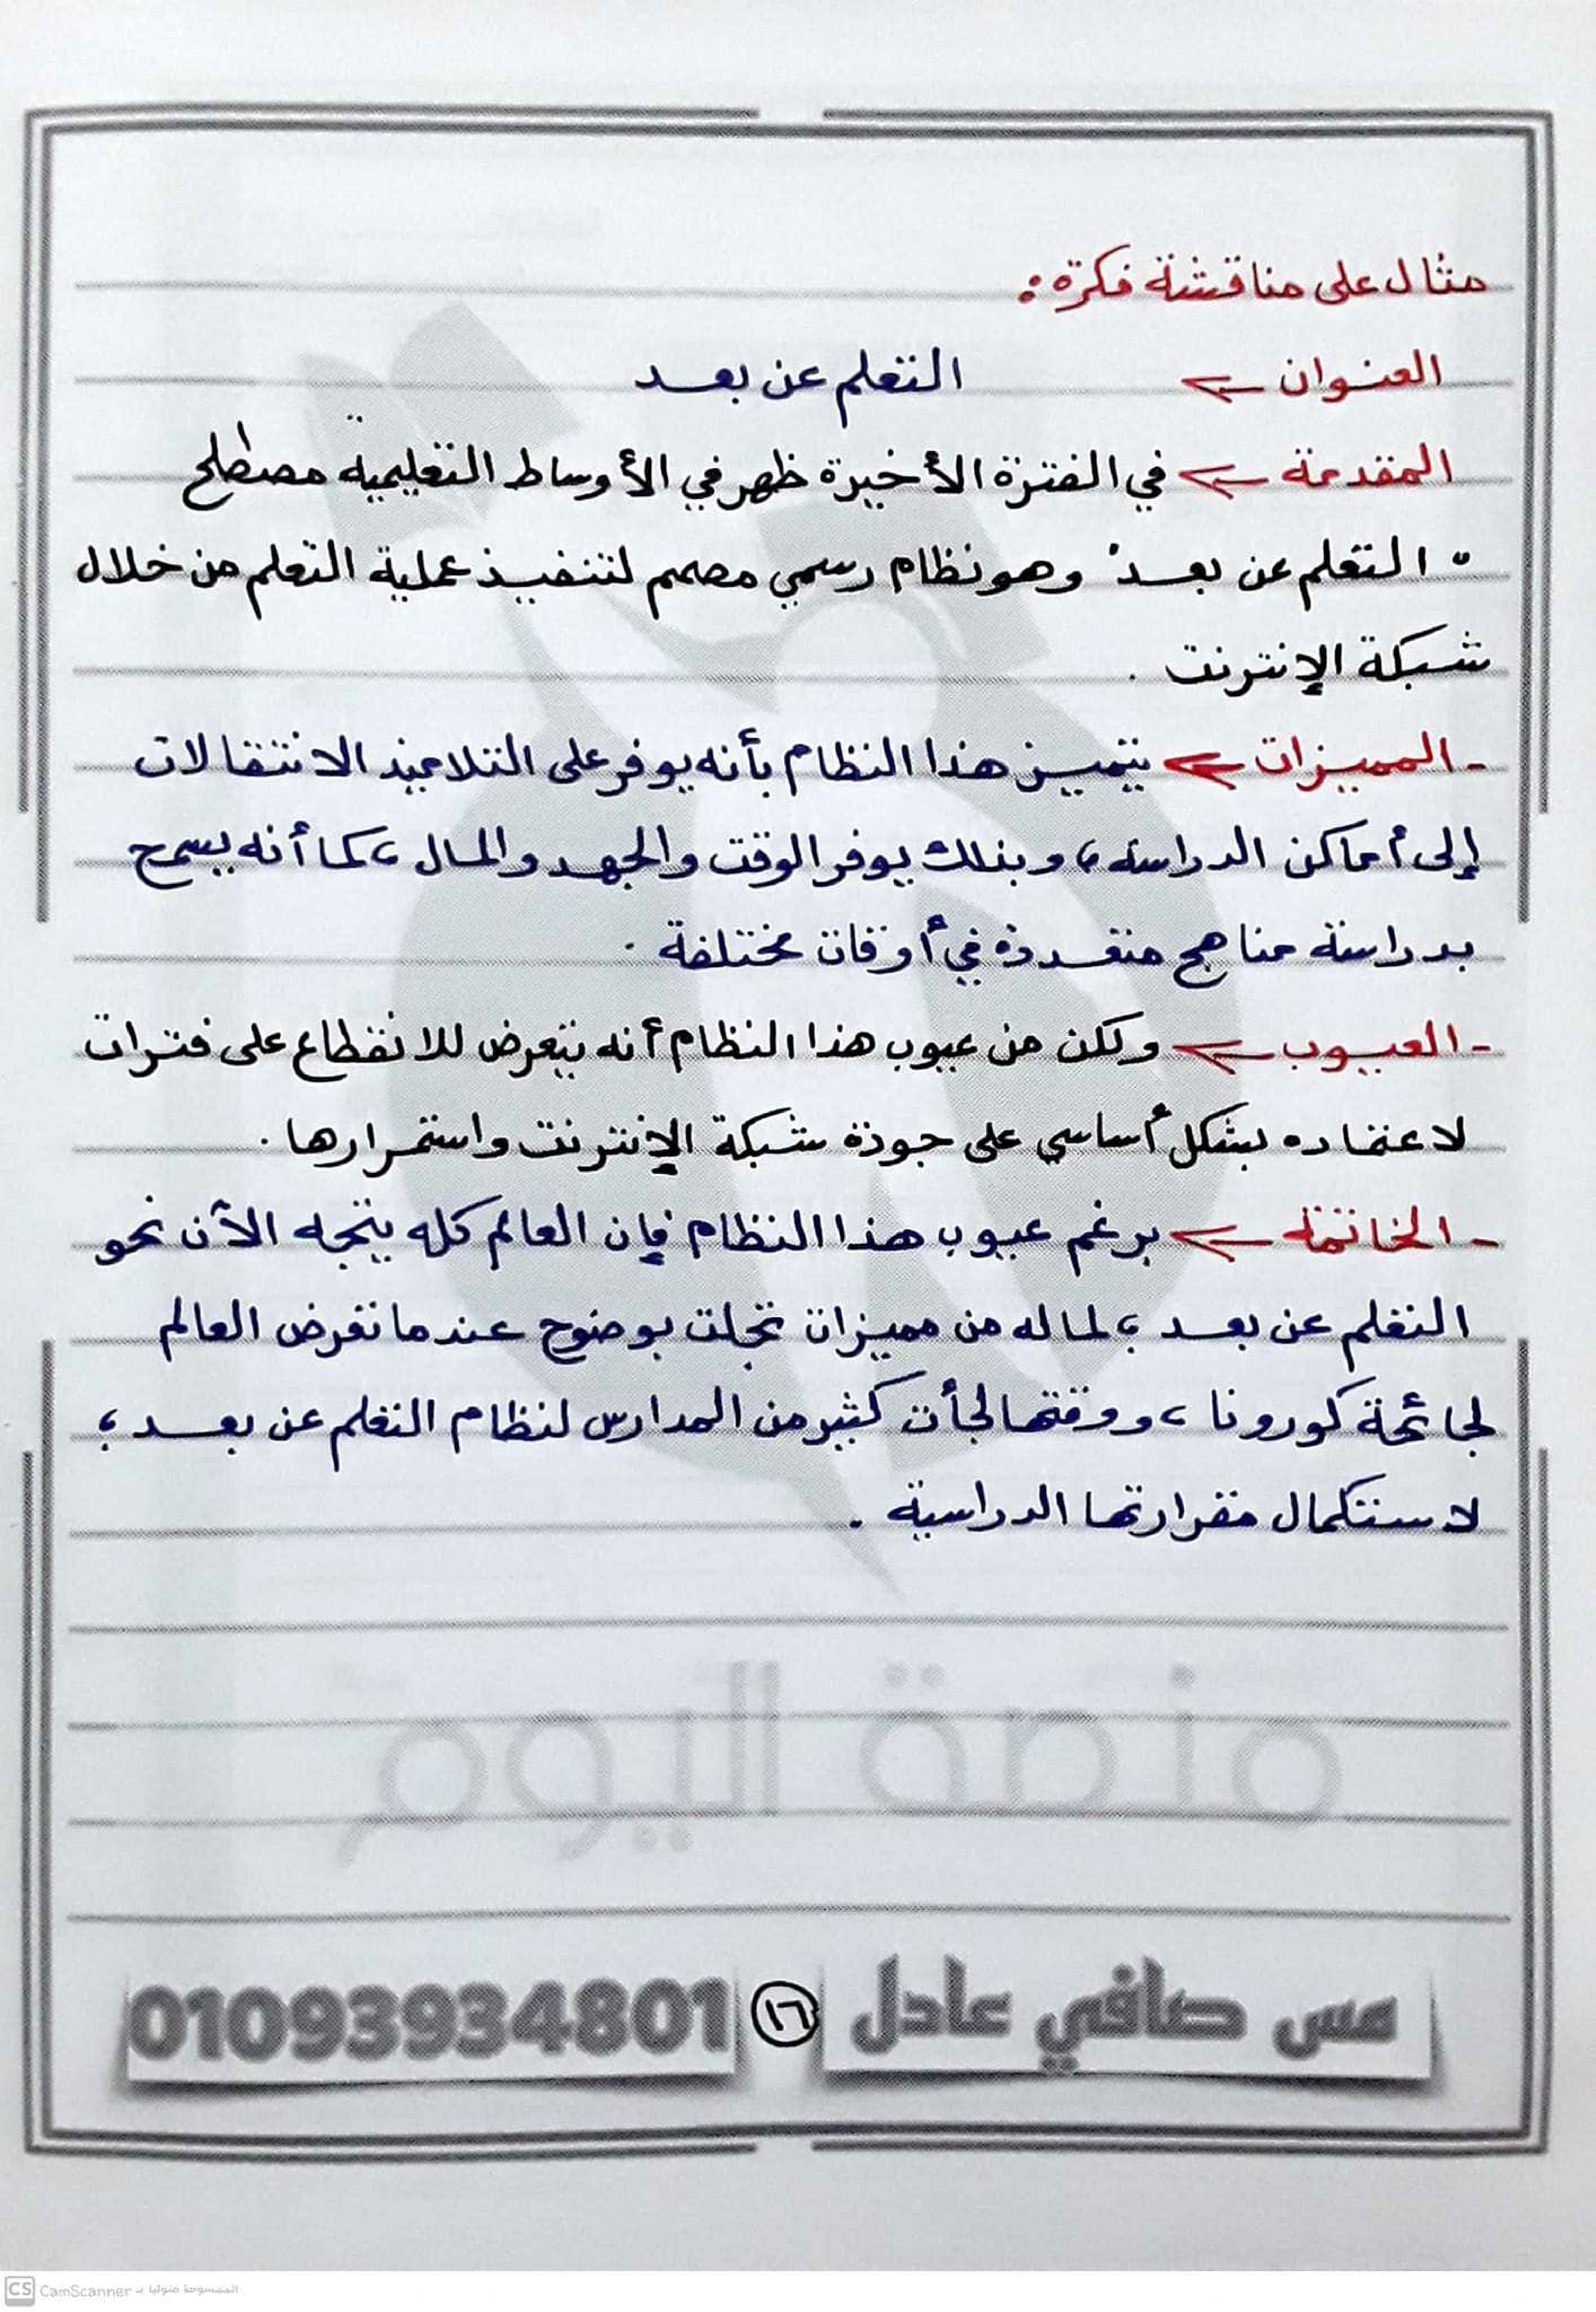 مثال على مناقشة فكرة :
العنوان ← التعلم عن بعد
المقدمة ← في الفترة الأخيرة ظهر في الأوساط التعليمية مصطلح
" التعلم عن بعد" وهو نظام رسمي مصمم لتنفيذ عملية التعلم من خلال
شبكة الإنترنت .
- المميزات ← يتميز هذا النظام بأنه يوفر على التلاميذ الانتقالات
إلى أماكن الدراسة ، وبذلك يوفر الوقت والجهد والمال ، كما أنه يسمح
بدراسة مناهج متعددة في أوقات مختلفة .
- العيوب ← ولكن من عيوب هذا النظام أنه يتعرض للانقطاع على فترات
لاعتماده بشكل أساسي على جودة شبكة الإنترنت واستمرارها .
- الخاتمة ← برغم عيوب هذا النظام فإن العالم كله يتجه الآن نحو
التعلم عن بعد ؛ لما له من مميزات تجلت بوضوح عندما تعرض العالم
لجائحة كورونا ، ووقتها لجأت كثير من المدارس لنظام التعلم عن بعد ؛
لاستكمال مقرارتها الدراسية .
منصة اليوم
مس صافي عادل ١٦ 01093934801
CS CamScanner الممسوحة ضوئيا بـ